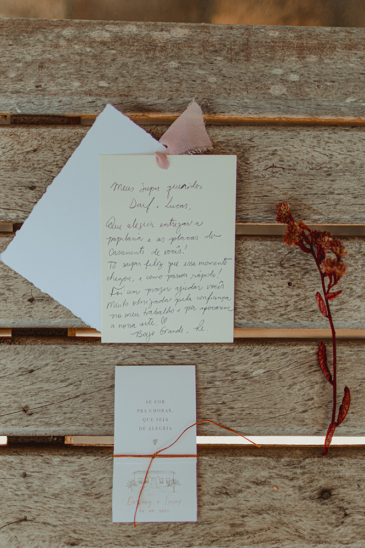 Meus super queridos
Davf e Lucas,
Que alegria entregar a
papelaria e as placas do
casamento de vocês!
Tô super feliz que esse momento
chegou, e como passou rápido!
Foi um prazer ajudar vocês
Muito obrigada pela confiança
no meu trabalho e por apoiarem
a nossa arte
Beijo Grande,
SE FOR
PRA CHORAR,
QUE SEJA
DE ALEGRIA.
Lucas